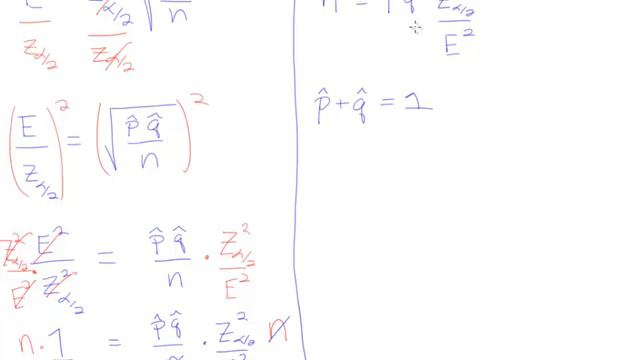 E/Z_{α/2} = Z_{α/2}/Z_{α/2} √(/n)
(E/Z_{α/2})² = (√(p̂ q̂/n))²
Z²_{α/2}/E² · E²/Z²_{α/2} = p̂ q̂/n · Z²_{α/2}/E²
n · 1 = p̂ q̂/n · Z²_{α/2} n
n = p̂ q̂ Z_{α/2}/E²
p̂ + q̂ = 1